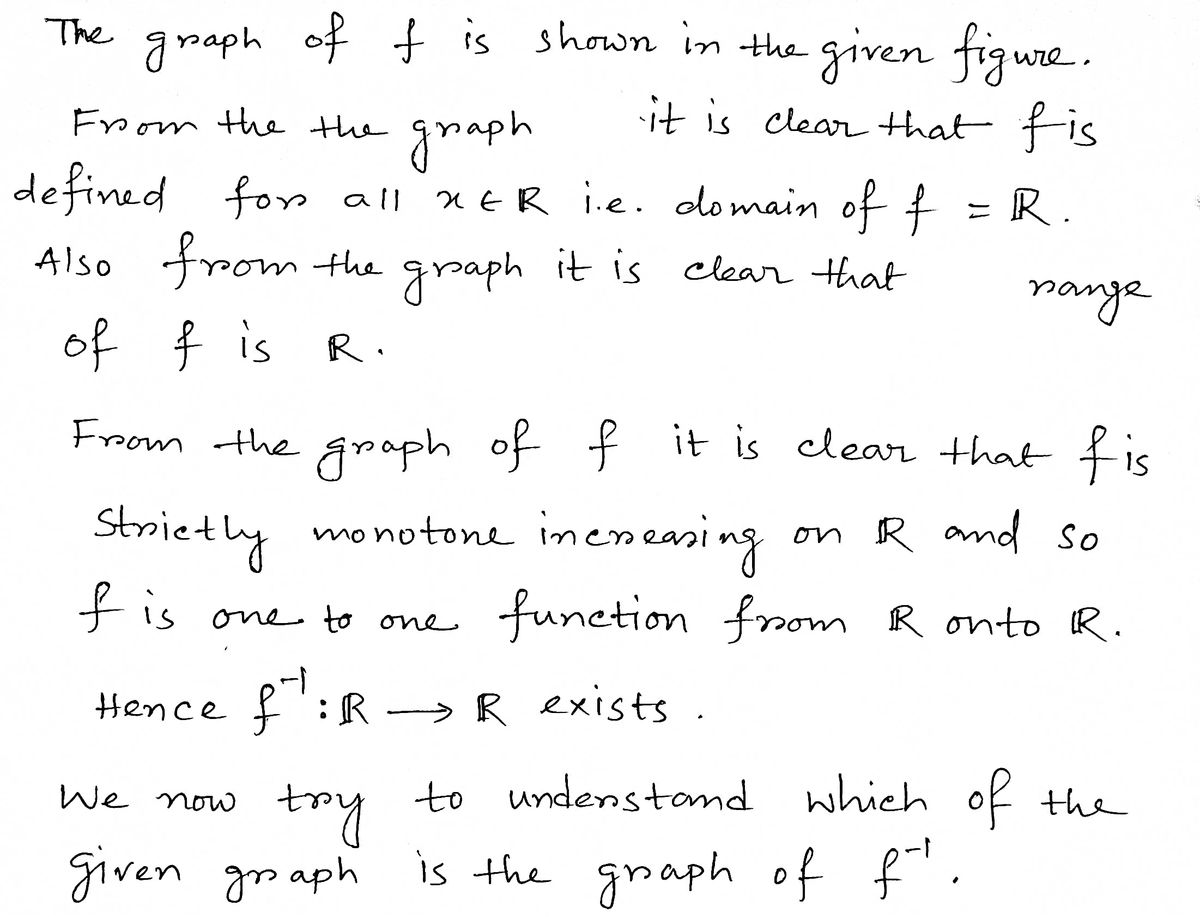 The graph of f is shown in the given figure.
From the the graph it is clear that f is
defined for all x ∈ R i.e. domain of f = ℝ.
Also from the graph it is clear that range
of f is ℝ.
From the graph of f it is clear that f is
Strictly monotone increasing on ℝ and so
f is one to one function from ℝ onto ℝ.
Hence f⁻¹ : ℝ → ℝ exists.
We now try to understand which of the
given graph is the graph of f⁻¹.